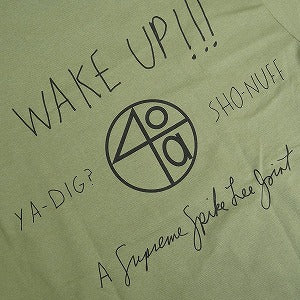 WAKE UP!!!
YA-DIG?
40a
SHO-NUFF
A Supreme Spike Lee Joint